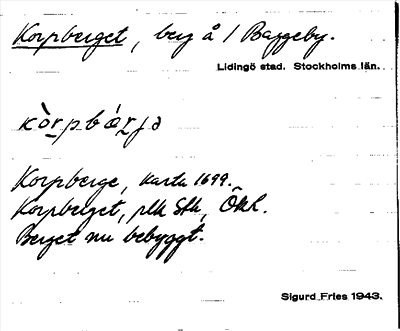 Korpberget, berg å / Baggeby.
Lidingö stad. Stockholms län.
kòrpbǽrjə
Korpberge, karta 1699.
Korpberget, plk Sth, Ökh.
Berget nu bebyggt.
Sigurd Fries 1943.